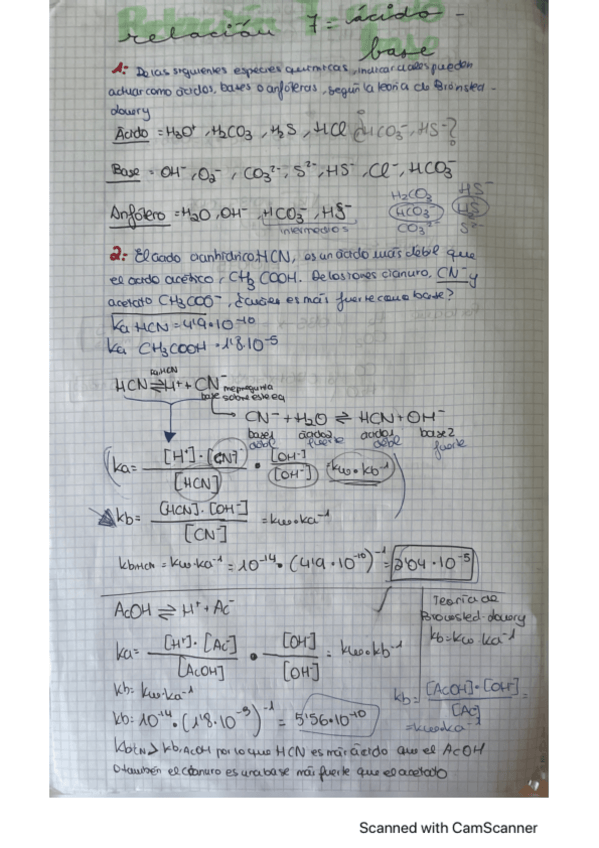 relación 7 = ácido -
base
1: De las siguientes especies químicas, indicar cuales pueden
actuar como ácidos, bases o anfóteras, según la teoría de Brönsted -
lowry
Ácido = H3O+, H2CO3, H2S, HCl ¿HCO3-, HS-?
Base = OH-, O2-, CO3^2-, S^2-, HS-, Cl-, HCO3-
Anfótero = H2O, OH-, HCO3-, HS-
intermedios
H2CO3
HCO3-
CO3^2-
HS-
S^2-
2: El ácido cianhídrico, HCN, es un ácido más débil que
el ácido acético, CH3COOH. De los iones cianuro, CN- y
acetato CH3COO-, ¿cuál es más fuerte como base?
Ka HCN = 4'9·10^-10
Ka CH3COOH · 1'8·10^-5
HCN ⇌ H+ + CN- me pregunta
base sobre este eq
CN- + H2O ⇌ HCN + OH-
base1 ácido2 ácido1 base2
débil fuerte débil fuerte
ka = [H+]·[CN-] / [HCN] · [OH-] / [OH-] = kw·kb^-1
kb = [HCN]·[OH-] / [CN-] = kw·ka^-1
kb HCN = kw·ka^-1 = 10^-14·(4'9·10^-10)^-1 = 2'04·10^-5
AcOH ⇌ H+ + Ac-
ka = [H+]·[Ac-] / [AcOH] · [OH-] / [OH-] = kw·kb^-1
kb: kw·ka^-1
kb: 10^-14·(1'8·10^-5)^-1 = 5'56·10^-10
Teoría de
Brownsted-lowry
kb = kw·ka^-1
kb = [AcOH]·[OH-] / [Ac-] =
= kw·ka^-1
kb CN > kb, AcOH por lo que HCN es más ácido que el AcOH
o también el cianuro es una base más fuerte que el acetato
Scanned with CamScanner